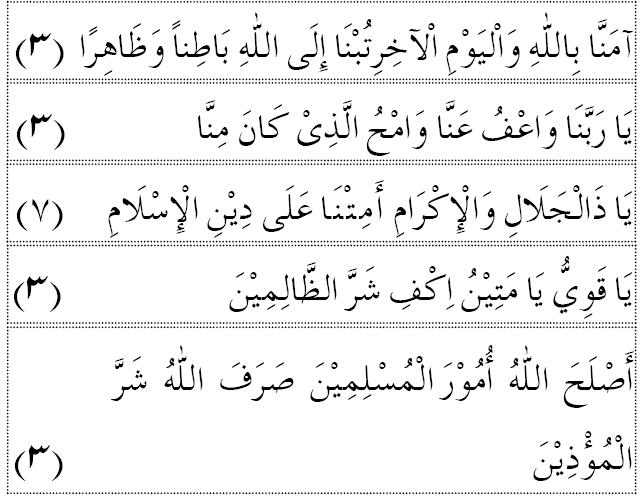 آمَنَّا بِاللّٰهِ وَاْليَوْمِ اْلآخِرِتُبْنَا إِلَى اللّٰهِ بَاطِناً وَظَاهِرًا (٣)
يَا رَبَّنَا وَاعْفُ عَنَّا وَامْحُ الَّذِىْ كَانَ مِنَّا (٣)
يَا ذَالْجَلَالِ وَالْإِكْرَامِ أَمِتْنَا عَلَى دِيْنِ الْإِسْلَامِ (٧)
يَا قَوِيُّ يَا مَتِيْنُ اِكْفِ شَرَّ الظَّالِمِيْنَ (٣)
أَصْلَحَ اللّٰهُ أُمُوْرَ الْمُسْلِمِيْنَ صَرَفَ اللّٰهُ شَرَّ
الْمُؤْذِيْنَ (٣)